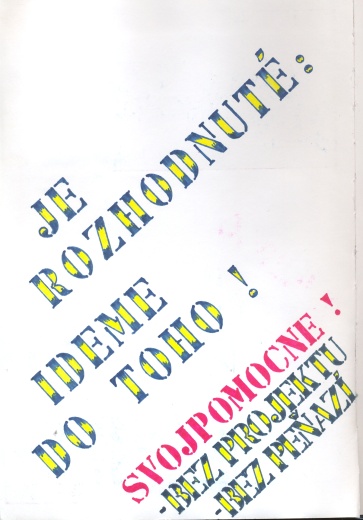 JE
ROZHODNUTÉ:
IDEME
DO TOHO !
SVOJPOMOCNE !
-BEZ PROJEKTU
-BEZ PEŇAZÍ